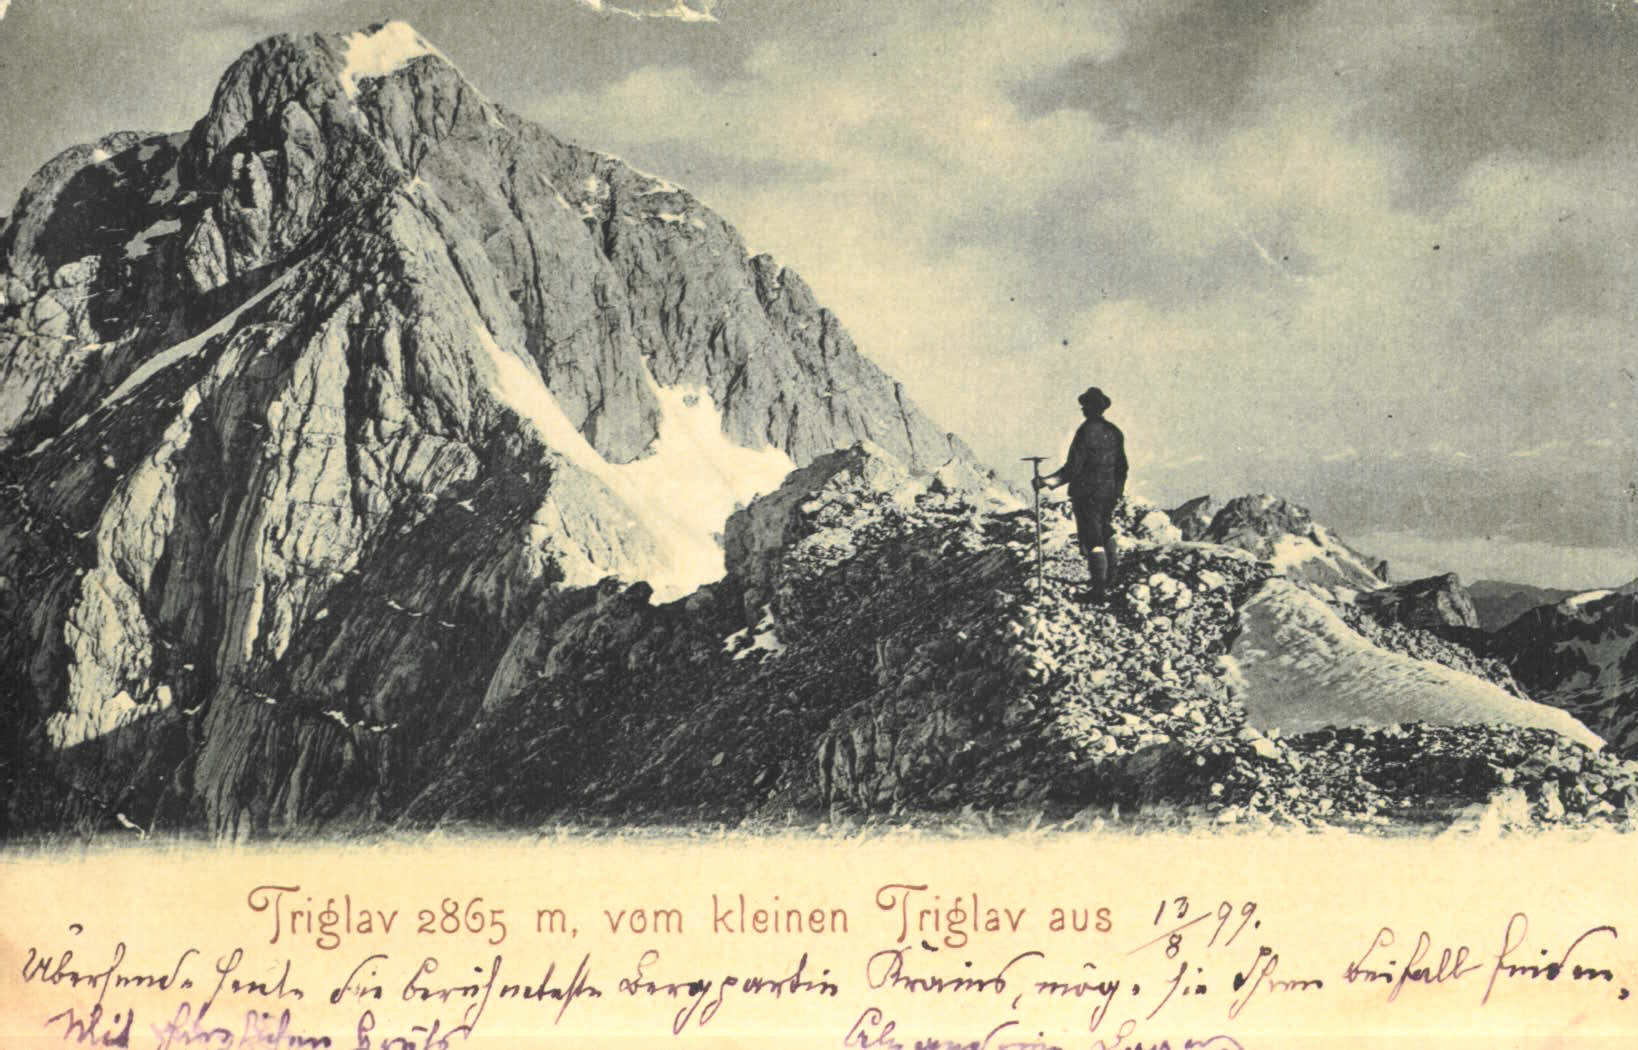 Triglav 2865 m, vom kleinen Triglav aus 13/8 99.
Übersende heute die berühmteste Bergpartie Krains, möge sie Ihren Beifall finden,
Mit herzlichen Grüßen